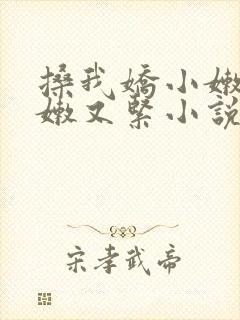 搡我嬌小嫩
嫩又緊小說
宋孝武帝